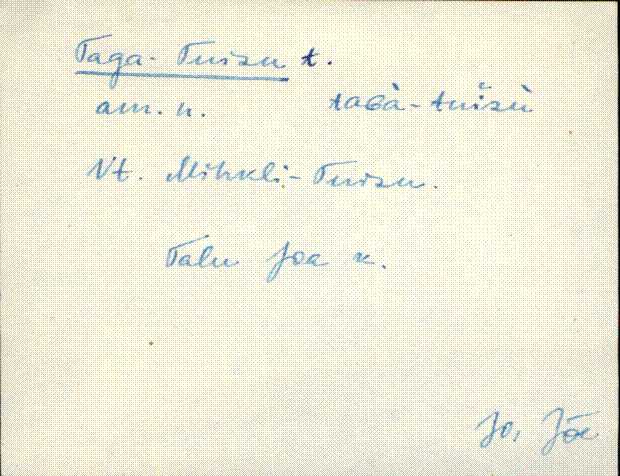 Taga-Tuisu t.
am. n. taGà-tuìsù
Vt. Mihkli-Tuisu.
Talu Joa k.
Jo, Jõe